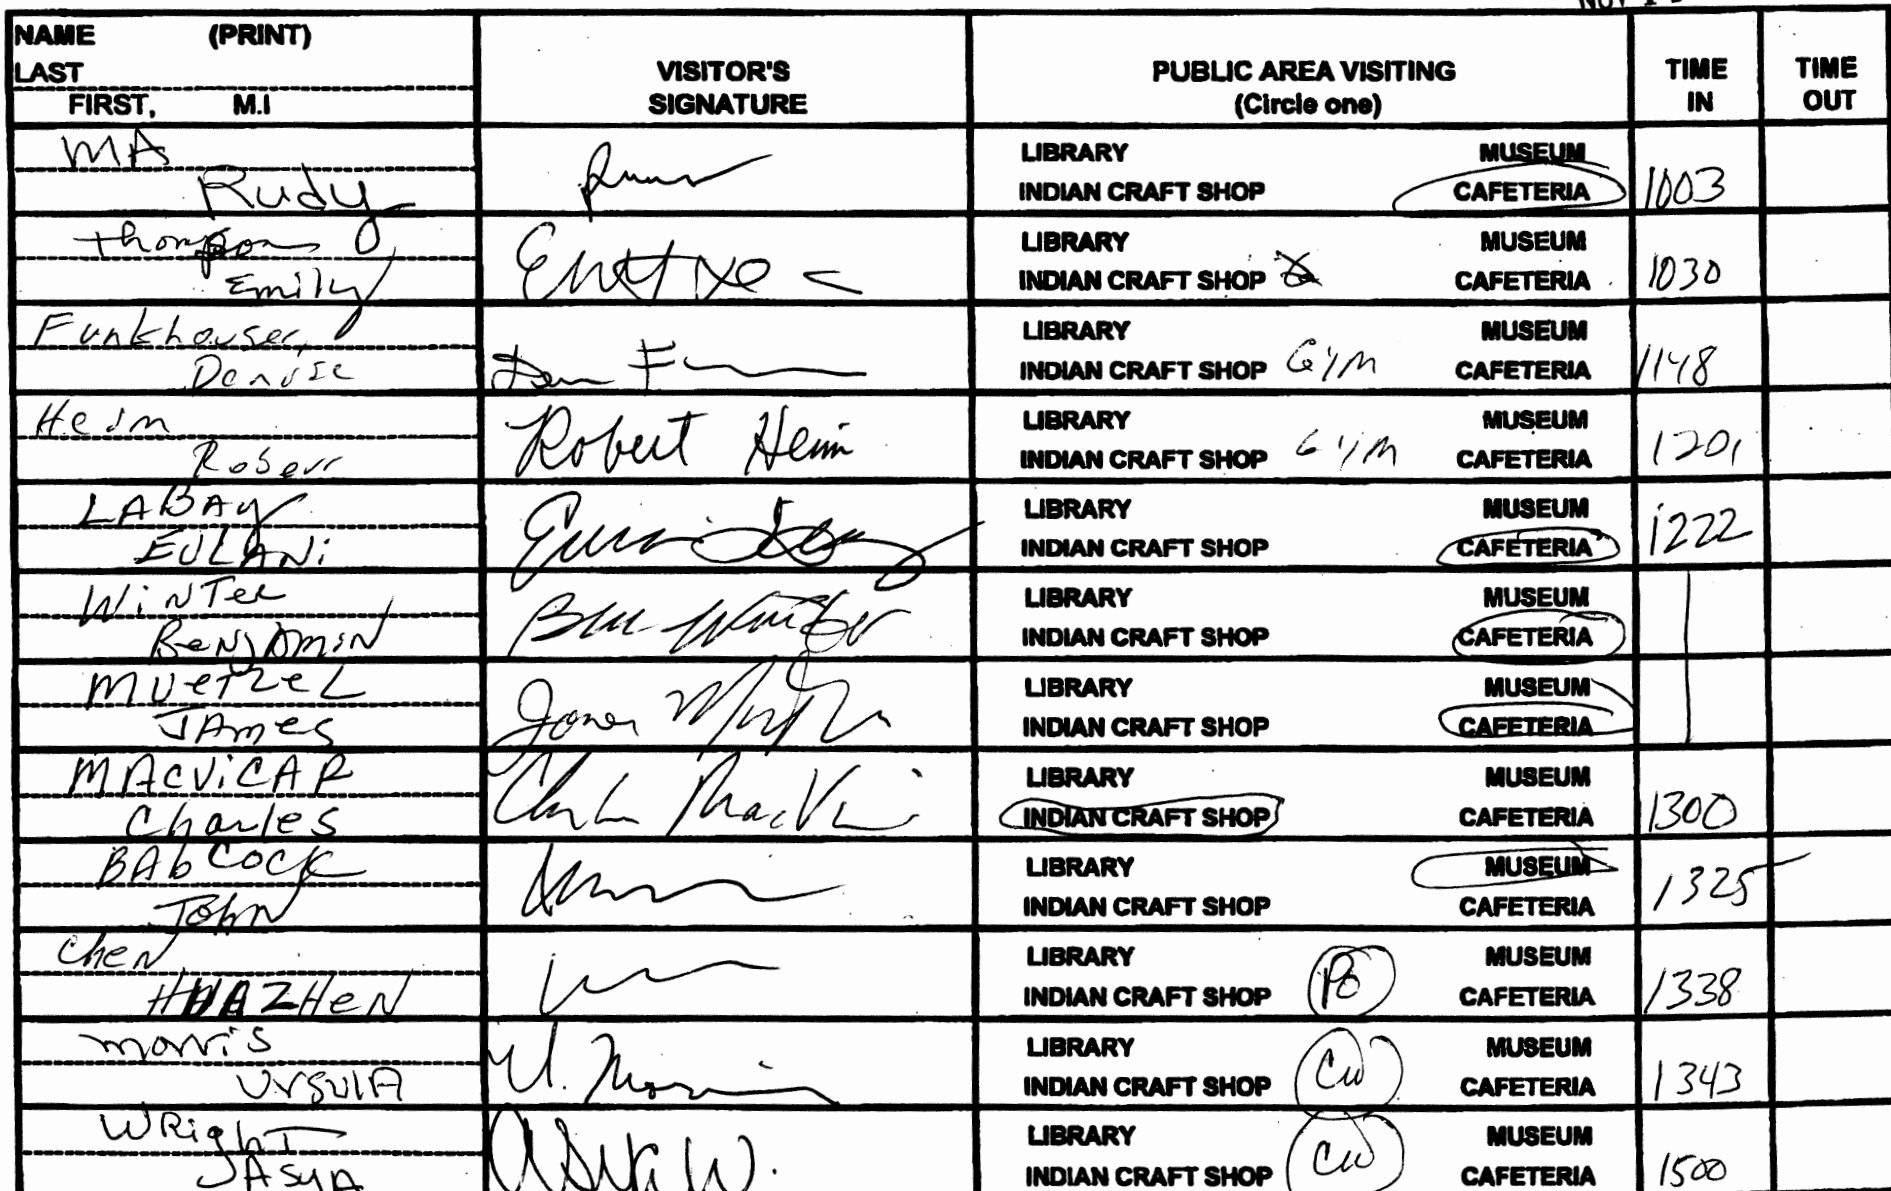 NAME (PRINT)
LAST
FIRST, M.I
VISITOR'S
SIGNATURE
PUBLIC AREA VISITING
(Circle one)
TIME
IN
TIME
OUT
MA
Rudy
LIBRARY MUSEUM
INDIAN CRAFT SHOP CAFETERIA
1003
Thompson
Emily
LIBRARY MUSEUM
INDIAN CRAFT SHOP CAFETERIA
1030
Funkhouser,
Denise
LIBRARY MUSEUM
INDIAN CRAFT SHOP GYM CAFETERIA
1148
Heim
Robert
Robert Heim
LIBRARY MUSEUM
INDIAN CRAFT SHOP GYM CAFETERIA
1201
LABAY
EULANi
LIBRARY MUSEUM
INDIAN CRAFT SHOP CAFETERIA
1222
WiNTer
BeNJAMiN
Ben Winter
LIBRARY MUSEUM
INDIAN CRAFT SHOP CAFETERIA
MUeTzeL
JAmes
LIBRARY MUSEUM
INDIAN CRAFT SHOP CAFETERIA
MAcViCAR
Charles
LIBRARY MUSEUM
INDIAN CRAFT SHOP CAFETERIA
1300
BAbCOCK
JohN
LIBRARY MUSEUM
INDIAN CRAFT SHOP CAFETERIA
1325
CheN
HUAZHeN
LIBRARY MUSEUM
INDIAN CRAFT SHOP PO CAFETERIA
1338
Morris
UrsulA
U. Morris
LIBRARY MUSEUM
INDIAN CRAFT SHOP CW CAFETERIA
1343
WRighT
JASyA
LIBRARY MUSEUM
INDIAN CRAFT SHOP CW CAFETERIA
1500